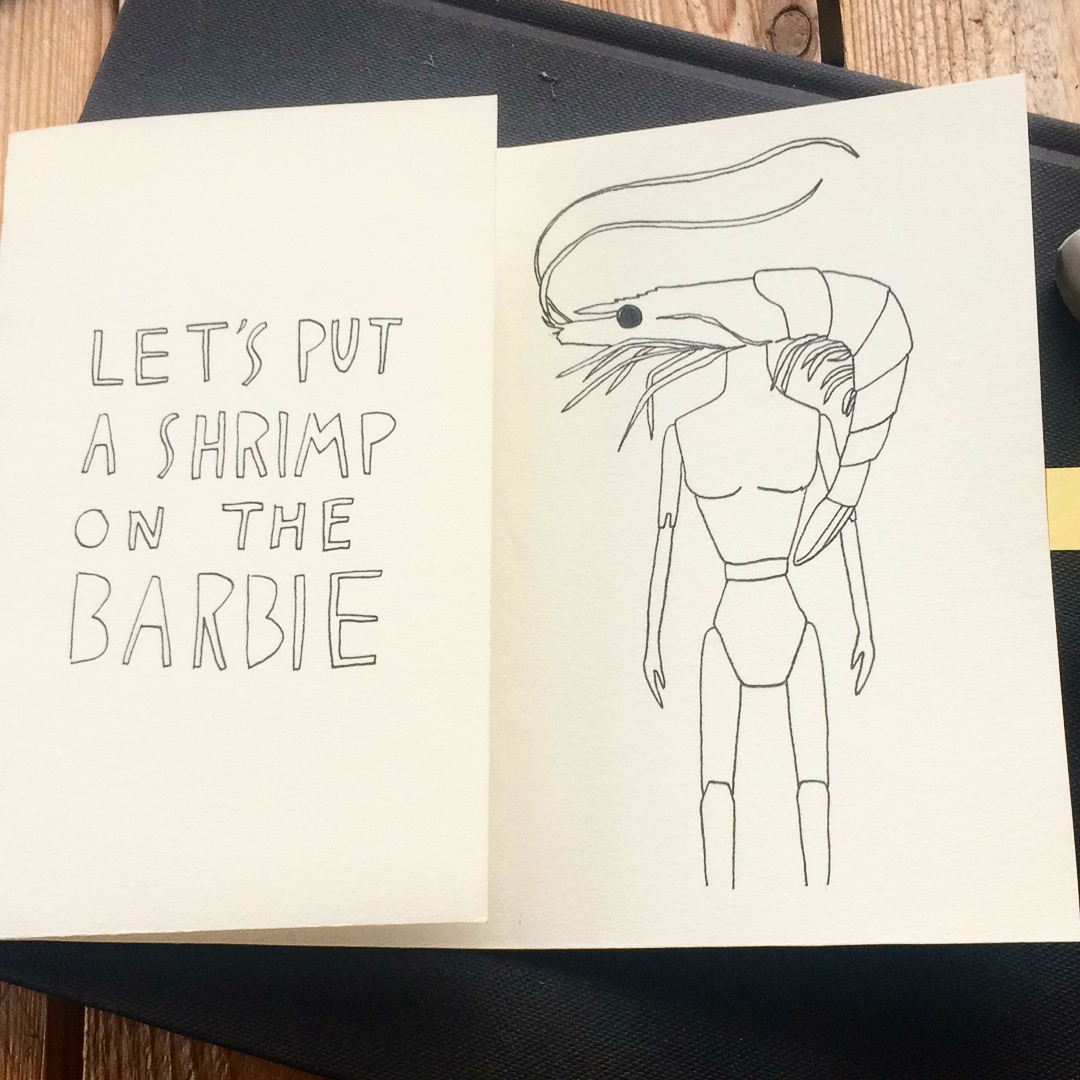 LET'S PUT
A SHRIMP
ON THE
BARBIE